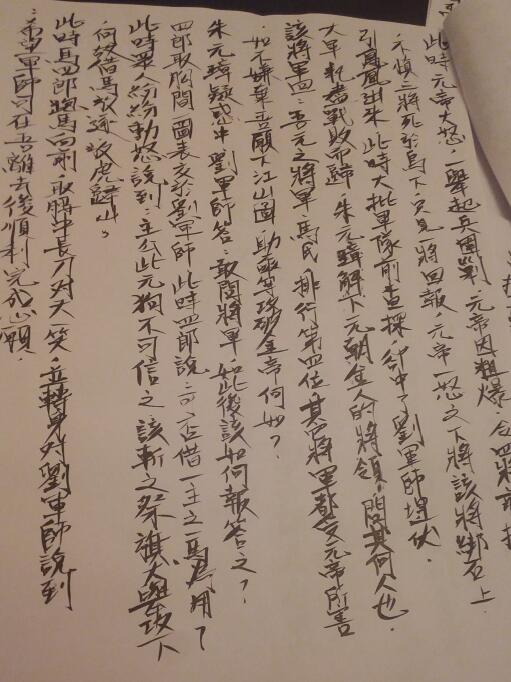 元帝因粗爆.令四將前
此時元帝大怒.一舉起兵圍剿
不慎三將死於馬下只見將回報.元帝一怒之下將該將綁石上.
引鳳凰出來 此時大批軍隊前查探.卻中了劉軍師埋伏.
大軍 戰敗而歸.朱元璋解下元朝金人的將領.問其何人也.
該將軍曰:吾元之將軍.馬氏.排行第四位 其因將軍都受元帝所害
如不嫌棄吾願下江山圖.助 攻破金帝何如?
朱元璋疑惑中 劉軍師答:敢問將軍 如此後該如何報答之?
四郎取胸間一圖表交於劉軍師 此時四郎說:可否借一主之一馬為用了
此時眾人紛紛動怒說到:主公此元狗不可信之該斬之祭旗大舉攻下
何 借馬 放虎歸山.
此時馬四郎 馬向前.取將中長刀对大笑.並轉身对劉軍師說到
:希望軍師可在吾離去後順利完成心願.